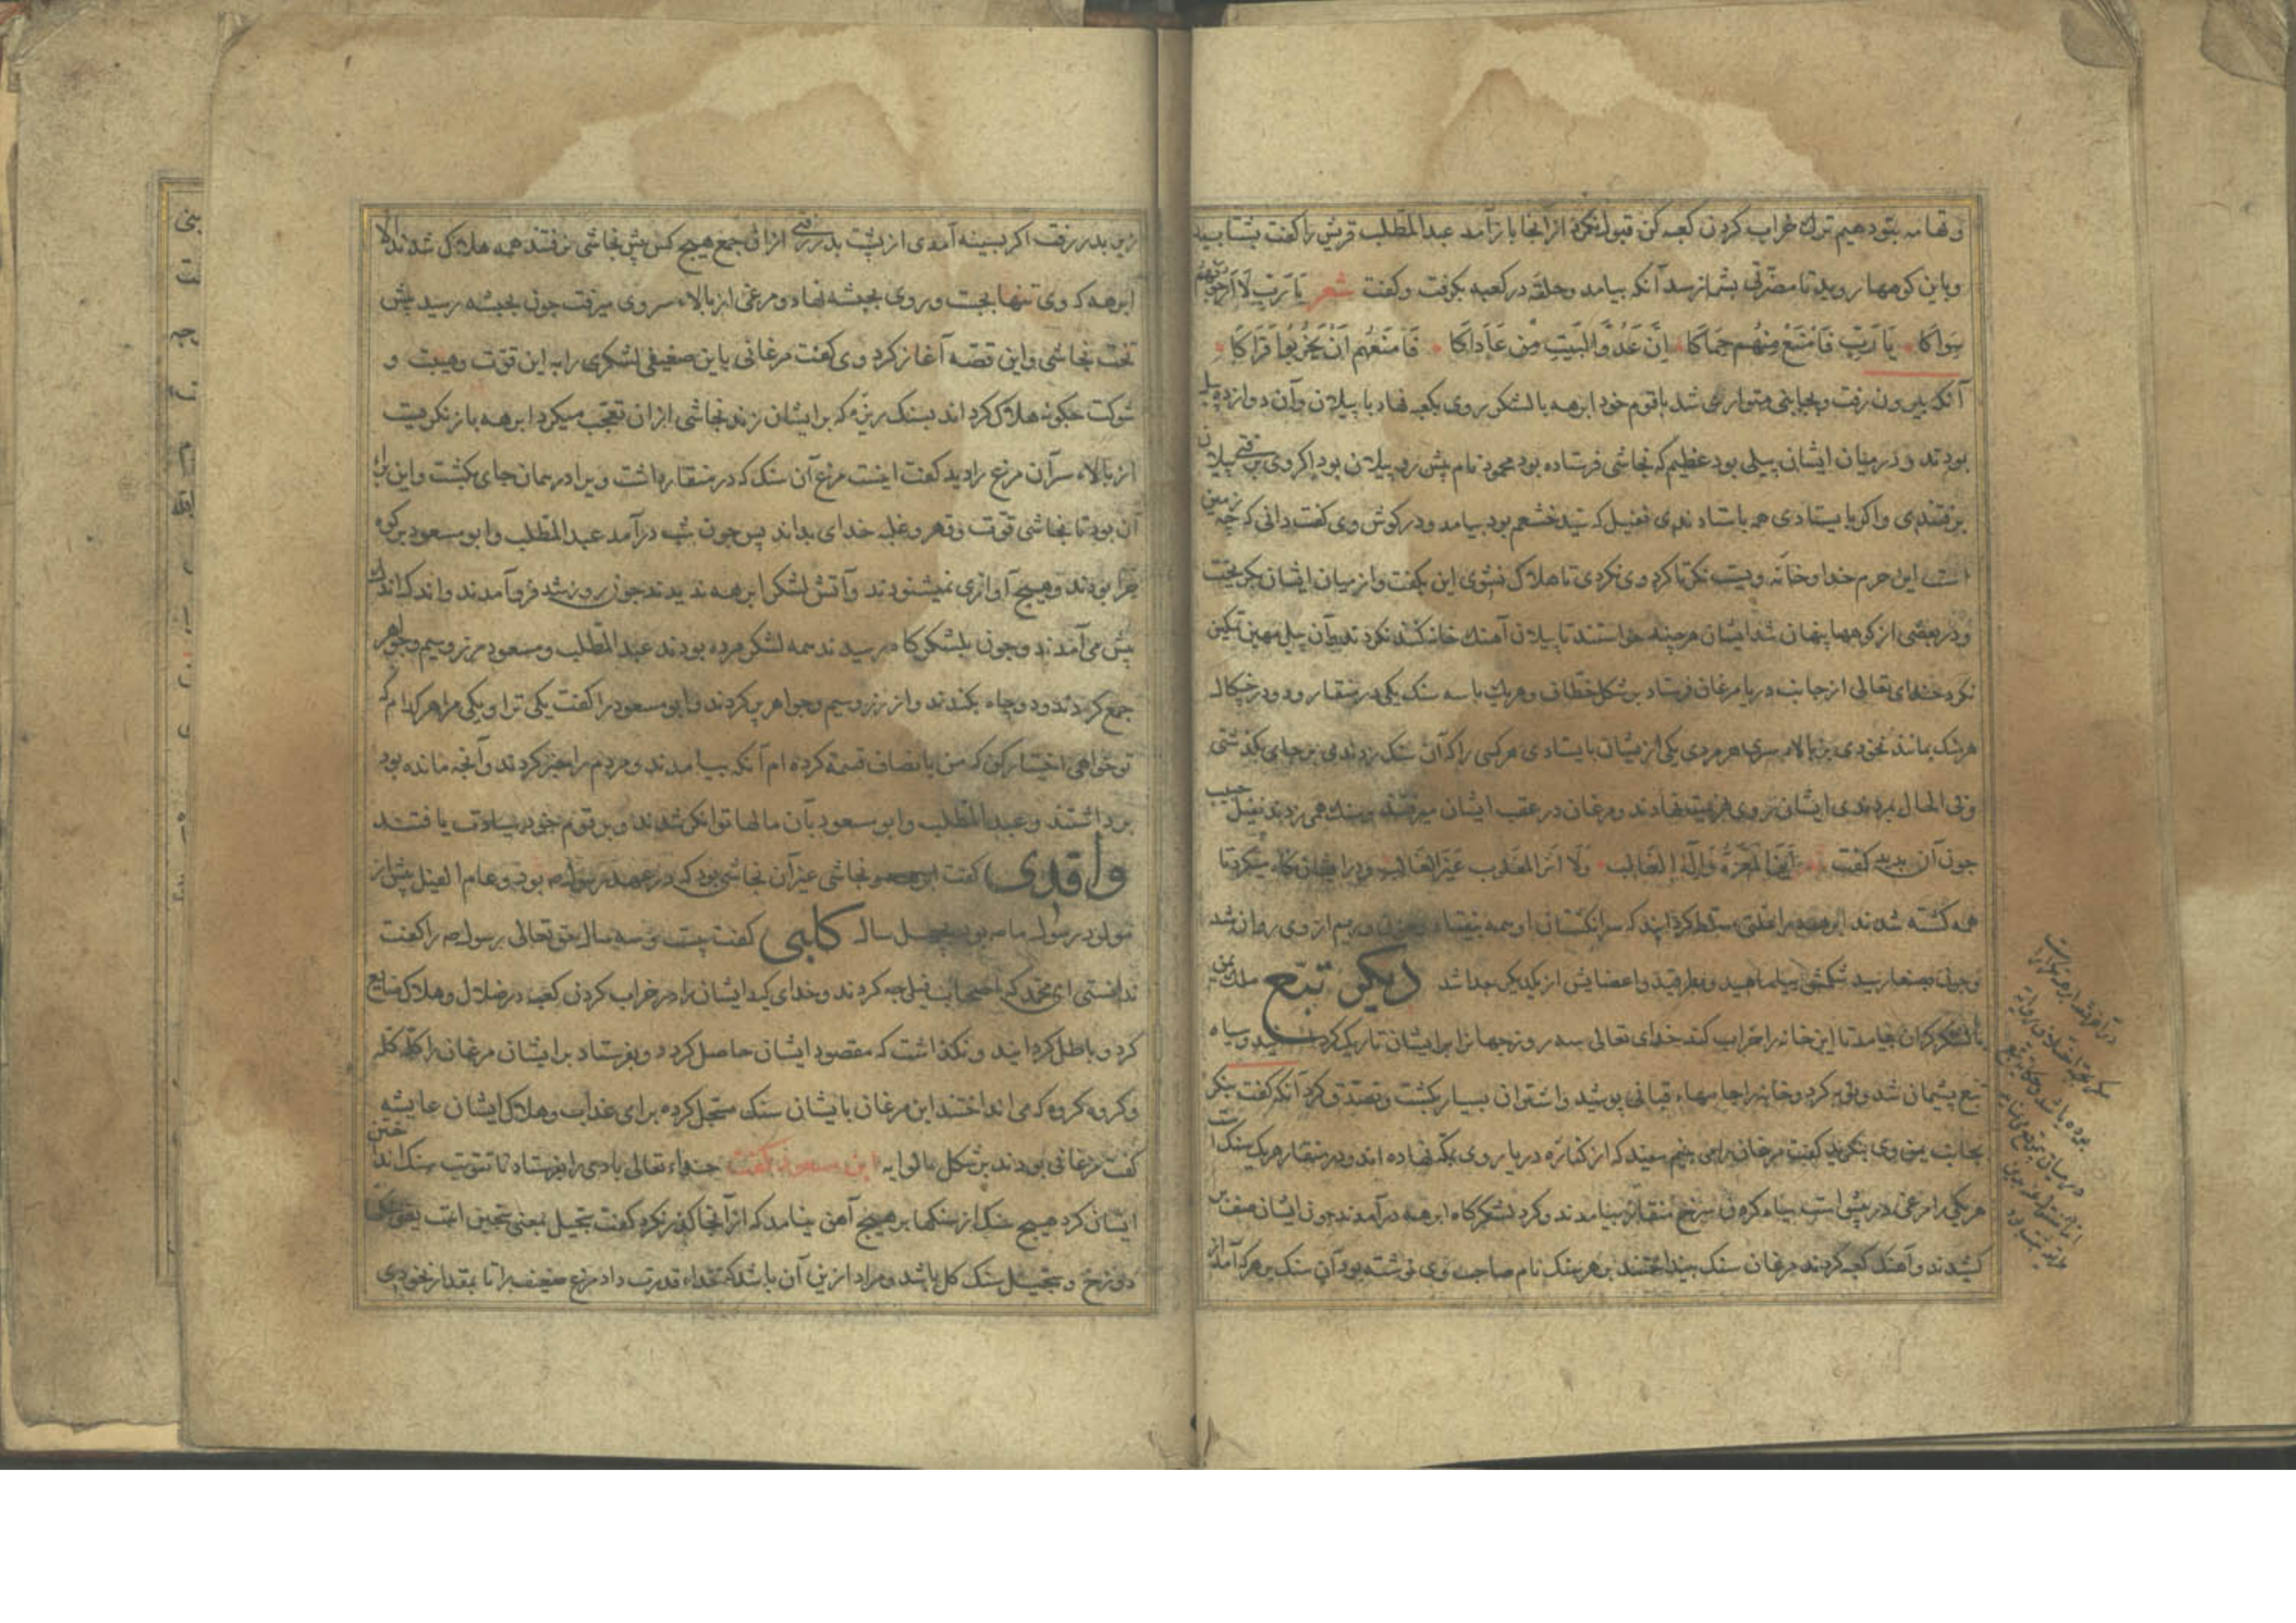 و تهامه بتو دهیم ترک خراب کردن کعبه کن قبول نکرد از آنجا باز آمد عبدالمطلب قریش را کفت بشتابید
و باین کوهها روید تا مضرتی بشما نرسد آنکه بیامد و حلقه در کعبه بکرفت و کفت شعر یَا رَبِّ لَا اَرْجُو لَهُمْ
سِوَاکَا یَا رَبِّ فَامْنَعْ مِنْهُم حِمَاکَا اِنَّ عَدُوَّ البَیْتِ مِن عَادَاکَا فَامنَعْهُم اَنْ یُخَرِّبُوا قُرَاکَا
آنکه بیرون رفت و بجایی متواری شد با قوم خود ابرهه با لشکر روی بکعبه نهاد با پیلان و آن دوازده پیل
بودند و در میان ایشان پیلی بود عظیم که نجاشی فرستاده بود محمود نام پیش رو پیلان بود اکر وی برفتی پیلان
برفتندی و اکر بایستادی همه باستادندی نفیل که سید خثعم بود بیامد و در کوش وی کفت دانی که چه زمین
است این حرم خدا و خانه ویست نکر تا کرد وی نکردی تا هلاک نشوی این بکفت و از میان ایشان بکریخت
و در بعضی از کوهها پنهان شد ایشان هرچند خواستند تا پیلان آهنک خانه کنند نکردند و آن پیل مهین تمکین
نکرد خدای تعالی از جانب دریا مرغان فرستاد بر شکل خطاف و هر یک با سه سنک یکی در منقار و دو در چنکال
هر سنک بمانند نخودی بر بالاء سر هر مردی یکی از یشان بایستادی هر کسی را که آن سنک زدندی بر جای بکذشتی
و فی الحال بمردندی ایشان روی هزیمت نهادند و مرغان در عقب ایشان میرفتند و سنک همی زدند نفیل حبیب
چون آن بدید کفت اَیْنَ المَفَرُّ وَالْاِلهُ الغَالِب وَلَا اَثَرَ المَغْلُوب غَیْرَ الغَالِب و در ایشان نکاه میکرد تا
همه کشته شدند ابرهه را علتی مسلط کردانید که سر انکشتان او همه بیفتاد و خون و ریم از وی روان شد
و چون بصنعا رسید شکمش بیاماهید و بطرقید و اعضایش از یکدیکر جدا شد دیکر تبّع ملک یمن
با لشکر کران بیامد تا این خانه را خراب کند خدای تعالی سه روز جهان را بر ایشان تاریک کرد سفید و سیاه
تبع پشیمان شد و توبه کرد و خانه را جامهاء قباتی پوشید و اشتران بسیار بکشت و تصدق کرد آنکه کفت بنکر
بجانب یمن وی بنکرید کفت مرغان را می بینم سفید که از کناره دریا روی بمکه نهاده اند و در منقار هر یک سنک است
هر یکی را مرغی در پیش است سیاه کردن سرخ منقار بیامدند و کرد لشکرکاه ابرهه در آمدند چون ایشان صف بر
کشیدند و آهنک کعبه کردند مرغان سنک بینداختند بر هر سنک نام صاحب وی نوشته بود آن سنک بر هر که آمد از
زین بدر رفت اکر بسینه آمدی از پشت بدر رفتی از آن جمع هیچ کس پیش نجاشی نرفتند همه هلاک شدند الا
ابرهه که وی تنها بجست و روی بحبشه نهاد و مرغی از بالاء سر وی میرفت چون بحبشه رسید پیش
تخت نجاشی و این قصه آغاز کرد وی کفت مرغانی باین ضعیفی لشکری را به این قوت و هیبت و
شوکت چکونه هلاک کرده اند بسنک ریزه که بر ایشان زدند نجاشی از آن تعجب میکرد ابرهه باز نکریست
از بالاء سر آن مرغ را دید کفت اینست مرغ آن سنک که در منقار داشت ویرا در همان جای بکشت و این برای
آن بود تا نجاشی قوت و قهر و غلبه خدای بداند پس چون شب درآمد عبدالمطلب و ابو مسعود بر کوه
حرا بودند و هیچ آوازی نمیشنودند و آتش لشکر ابرهه ندیدند چون روز شد فروآمدند و اندک اندک
پیش می آمدند و چون بلشکرکاه رسیدند همه لشکر مرده بودند عبدالمطلب و مسعود زر و سیم و جواهر
جمع کردند و دو چاه بکندند و از زر و سیم و جواهر پر کردند و ابو مسعود را کفت یکی ترا و یکی مرا هر کدام که
تو خواهی اختیار کن که من بانصاف قسمه کرده ام آنکه بیامدند و مردم را خبر کردند و آنچه مانده بود
برداشتند و عبدالمطلب و ابو سعود بآن مالها توانکر شدند و بر قوم خود سیادت یافتند
واقدی کفت ابرهه و نجاشی غیر آن نجاشی بود که در عهد رسوله بود و عام الفیل پیش از
مولود رسول ما صه بود بچهل سال کلبی کفت بیست و سه سال حق تعالی رسول صه را کفت
ندانستی ای محمد که اصحاب فیل چه کردند و خدای کید ایشان را در خراب کردن کعبه در ضلال و هلاک ضایع
کرد و باطل کردانید و نکذاشت که مقصود ایشان حاصل کردد و بفرستاد بر ایشان مرغان را کله کله
و کروه کروه که می انداختند این مرغان بایشان سنک سجیل کرده برای عذاب و هلاک ایشان عایشه
کفت مرغانی بودند بر شکل ابن مسعود کفت خداء تعالی بادی را بفرستاد تا تقویت سنک انداختن
ایشان کرد هیچ سنک از سنکها بر هیچ آهن نیامد که از آنجا کذر نکرد کفت سجیل بمعنی سجین است یعنی
دوزخ و سجیل سنک کل باشد و مراد از این آن باشد که خداء قدرت داد مرغ ضعیف را تا بمقدار نخودی